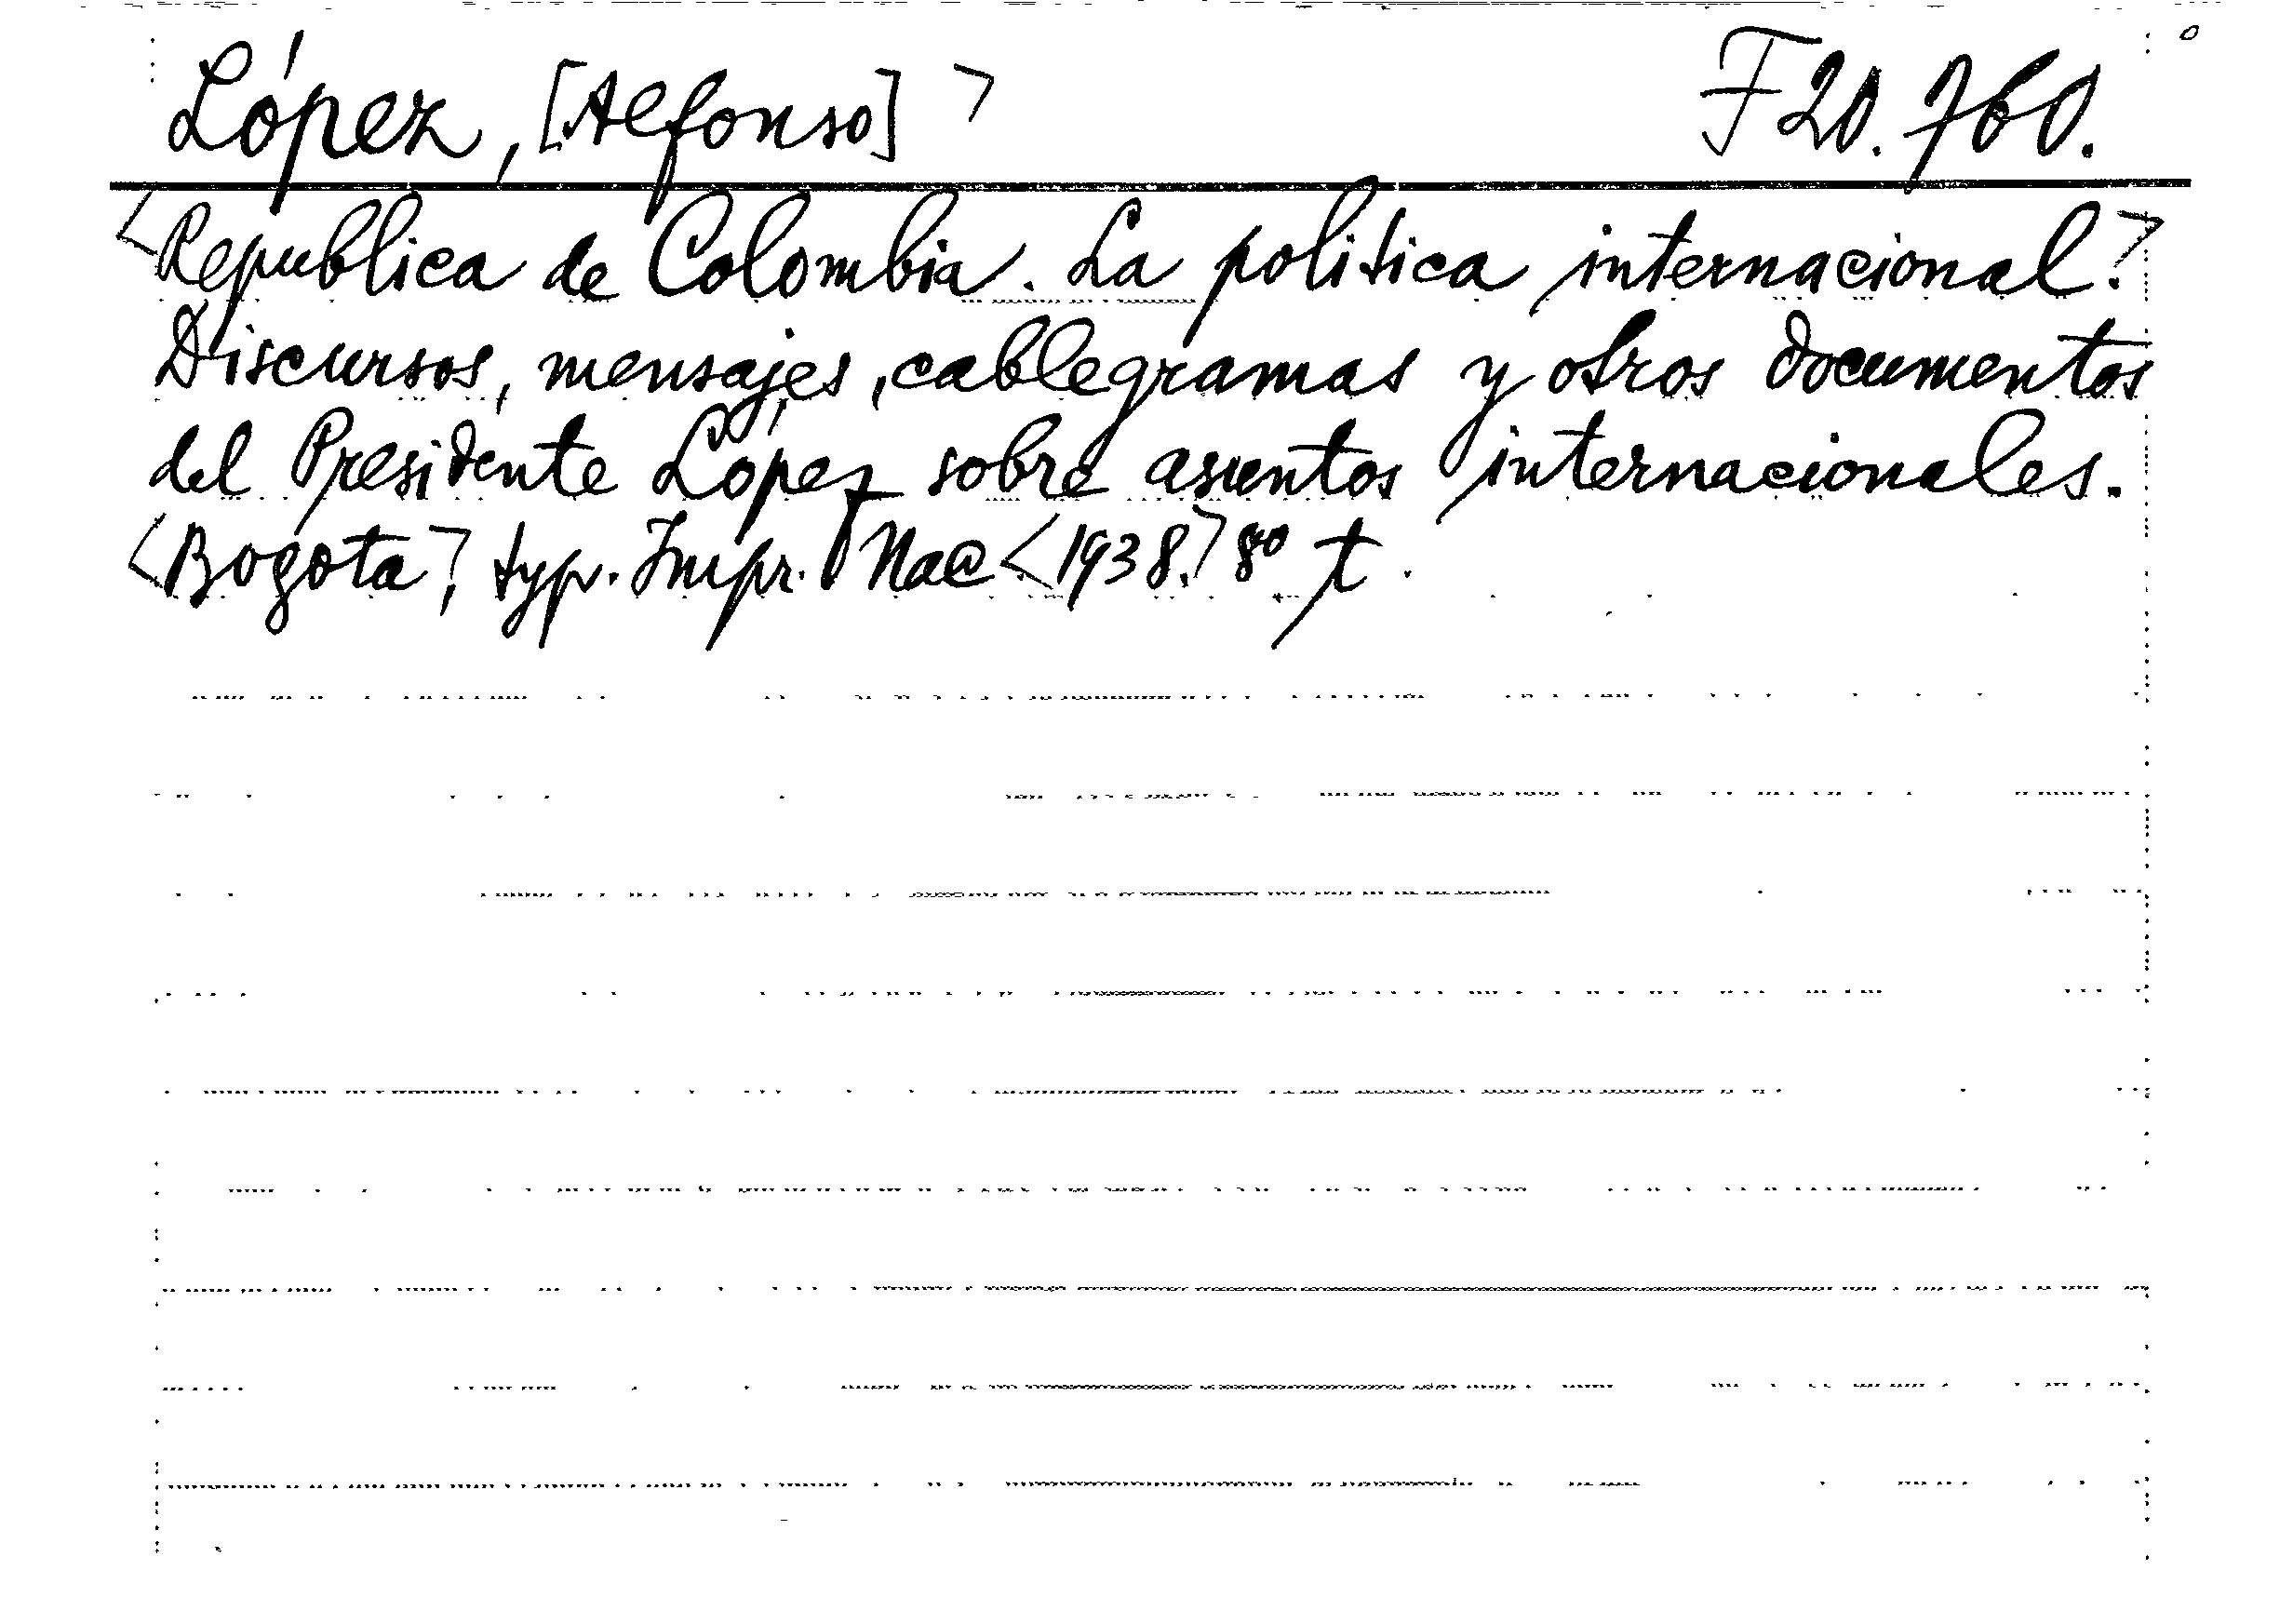 López, [Alfonso] > F 20.760.
<Republica de Colombia. La politica internacional.>
Discursos, mensajes, cablegramas y otros documentos
del Presidente López sobre asuntos internacionales.
<Bogota>, typ. Impr. Nac <1938.> 8º t.